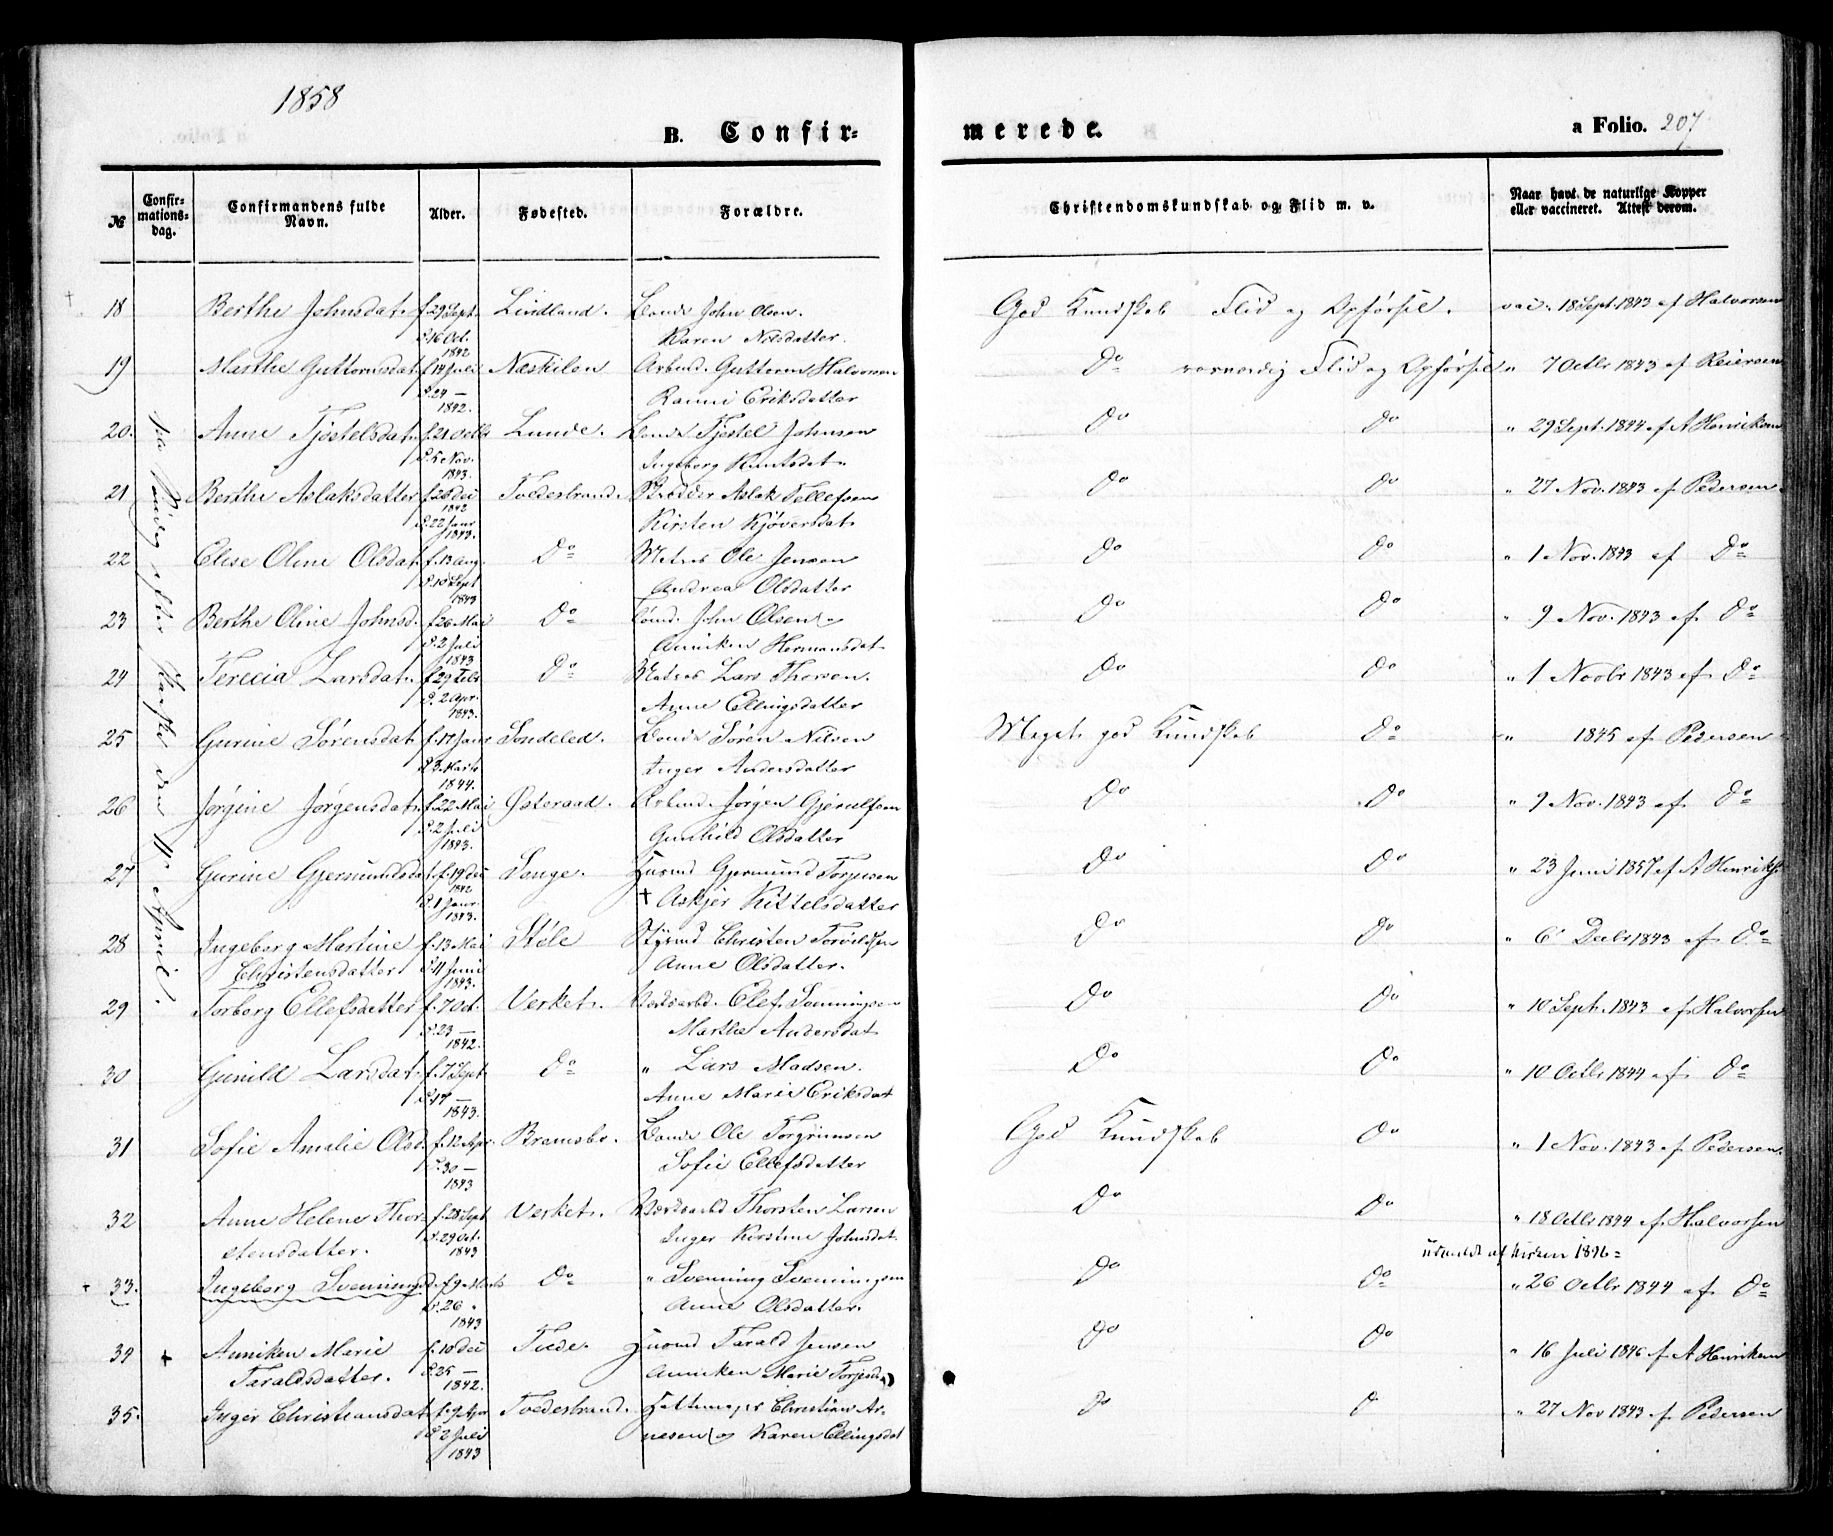 1858
B. Confir-
merede.
a Folio. 207
№
Confir-
mations-
dag.
Confirmandens fulde
Navn.
Alder.
Fødested.
Forældre.
Christendomskundskab og Flid m. v.
Naar havt de naturlige Kopper
eller vaccineret. Attest derom.
paa Søndag efter Paaske den 11te April.
18 Berthe Johnsdat. f. 29 Sept. Lindland. Bonde John Olsen. God Kundskab Flid og Opførsel. vac. 18 Sept. 1843 af Halvorsen
d. 16 Oct. Karen Nilsdatter.
1842
19 Marthe Guttormsdat. f. 14 Juli Næskilen Arbmd. Guttorm Halvorsen Do roesværdig Flid og Opførsel " 7 Octbr 1843 af Reiersen
d. 24 — Ranni Eriksdatter
1842.
20. Anne Tjøstelsdat. f. 21 Octbr Lunde. Bonde Tjøstel Johnsen Do Do " 29 Sept. 1844 af A Henriksen
d. 5 Nov. Ingeborg Knutsdat.
1843.
21 Berthe Aslaksdatter f. 26 Dec Tvedestrand. Aslak Tellefsen Do Do " 27 Nov. 1843 af Pedersen
1842
d. 22 Janr Kirsten Kjøversdat.
1843.
22 Elise Oline Olsdat. f. 13 Aug. Do Matros Ole Jensen Do Do " 1 Nov. 1843 af Do
d. 10 Sept Andrea Olsdatter
1843
23 Berthe Oline Johnsd. f. 26 Mai Do Tømd. John Olsen og Do Do " 9 Nov. 1843 af Do
d. 2 Juli Anniken Hermansdat.
1843
24 Terecia Larsdat. f. 29 Febr Do Matros Lars Thorsen. Do Do " 1 Novbr 1843 af Do
d. 2 Apr. Anne Ellingsdatter
1843.
25 Gurine Sørensdat. f. 17 Janr Søndeled. Bonde Søren Nilsen Meget god Kundskab Do " 1845 af Pedersen
d. 3 Marts Inger Andersdatter
1844.
26 Jørgine Jørgensdat. f. 22 Mai Østeraad. Arbmd. Jørgen Gjerulfsen Do Do " 9 Nov. 1843 af Do
d. 2 Juli Gunhild Olsdatter
1843.
27 Gurine Gjermundsdat. f. 19 Dec Songe. Husmd Gjermund Torjusen Do Do " 23 Juni 1857 af A Henriks.
1842
d. 1 Janr. † Askjer Kittelsdatter
1843.
28 Ingeborg Martine f. 13 Mai Støle Styrmd Christen Torvildsen Do Do " 6 Decbr 1843 af Do
Christensdatter d. 11 Juni Anne Olsdatter.
1843.
29 Torborg Ellefsdatter f. 7 Oct. Verket. Værksarbd. Elef Sonningsen Do Do " 10 Sept. 1843 af Halvorsen
d. 23 — Marthe Andersdat
1842.
30 Gunild Larsdat. f. 7 Sept. Do " Lars Madsen. Do Do " 10 Octbr 1844 af Do
d. 17 — Anne Marie Eriksdat
1843.
31 Sofie Amalie Olsd. f. 12 Apr. Bramsbo. Bonde Ole Torgrimsen God Kundskab Do " 1 Nov. 1843 af Pedersen.
d. 30 — Sofie Ellefsdatter
1843
32 Anne Helene Thor- f. 28 Sept Verket. Værksarbd Thorsten Larsen Do Do " 18 Octbr 1844 af Halvorsen
stensdatter. d. 29 Oct. Inger Kirstine Johnsdat.
1843
udmeldt af kirken 1896=
33. Ingeborg Svenningsd. f. 9 Marts Do " Svenning Svenningsen Do Do " 26 Octbr 1844 af Do
d. 26 " Anne Olsdatter.
1843
34 + Anniken Marie f. 10 Dec Tvede. Husmd Tarald Jensen Do Do " 16 Juli 1846 af A Henriksen
Taraldsdatter. d. 25 — Anniken Marie Torjusd.
1842.
35. Inger Christiansdat. f. 9 Apr Tvedestrand. Hattemager Christian Ar- Do Do " 27 Nov 1843 af Pedersen
d. 2 Juli nesen og Karen Ellingsdat
1843